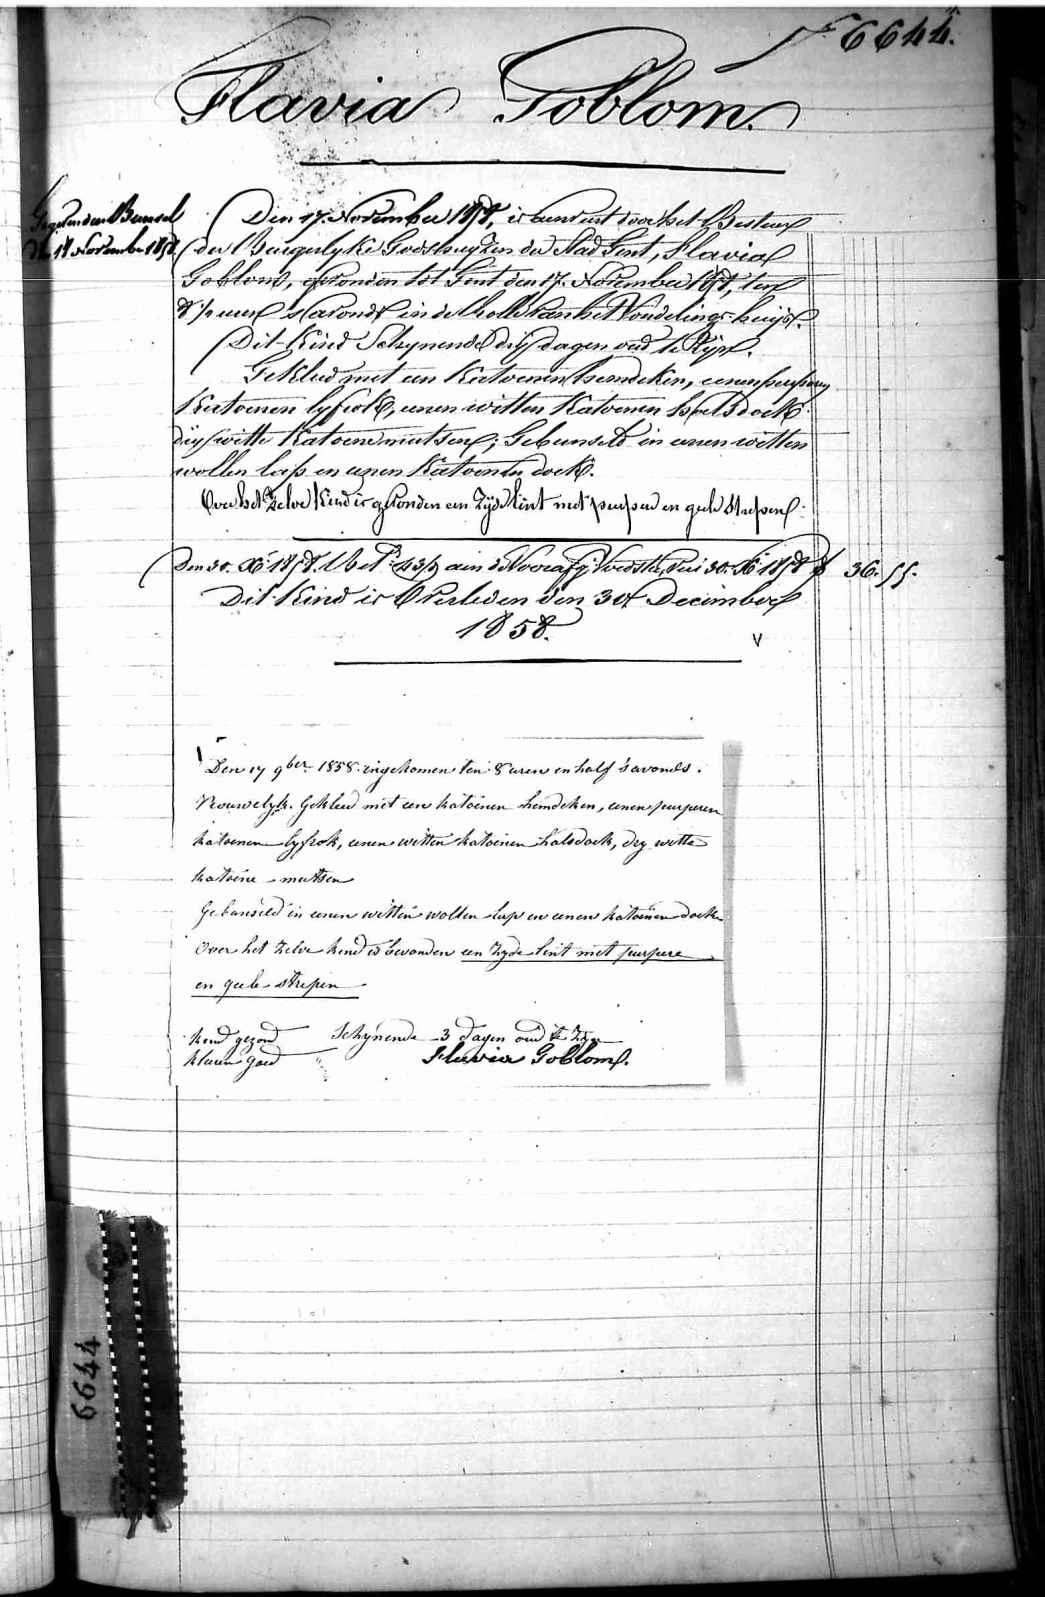 N° 6644.
Flavia Goblom.
Gegeven den Bunsel
den 17 November 1858.
Den 17. November 1858, is aenveird door het Bestuer
der Burgerlyke Godshuyzen der Stad Gent, Flavia
Goblom, gevonden tot Gent den 17. November 1858, ten
8 ½ uren s'avonds in de holle van het Vondelings-huys.
Dit Kind Schynende dry dagen oud te zyn.
Gekleed met een Katoenen hemdeken, eenen purperen
Katoenen lyfrok, eenen witten Katoenen halsdoek
dry witte Katoene mutsen; Gebunseld in eenen witten
wollen lap en eenen Katoenen doek.
Over het zelve Kind is gevonden een zyde lint met purpere en geele strepen.
Den 30. Xb 1858. 30. Xb 1858 36.55.
Dit Kind is Overleden den 30 December
1858.
V
Den 17 9ber 1858. ingekomen ten 8 uren en half s'avonds.
Vrouwelyk. Gekleed met een katoenen hemdeken, eenen purperen
katoenen lyfrok, eenen witten katoenen halsdoek, dry witte
katoene mutsen
Gebunseld in eenen witten wollen lap en eenen katoenen doek
Over het zelve kind is bevonden een zyde lint met purpere
en geele strepen
Kind gezond Schynende 3 dagen oud te zyn
kleuren goed Flavia Goblom.
6644